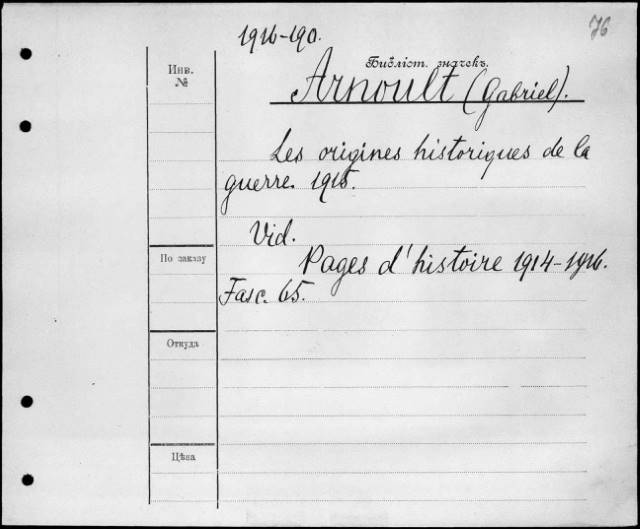 76
1916-190.
Библіот. значекъ.
Arnoult (Gabriel).
Инв.
№
Les origines historiques de la
guerre. 1915.
Vid.
Pages d'histoire 1914-1916.
Fasc. 65.
По заказу
Откуда
Цѣна